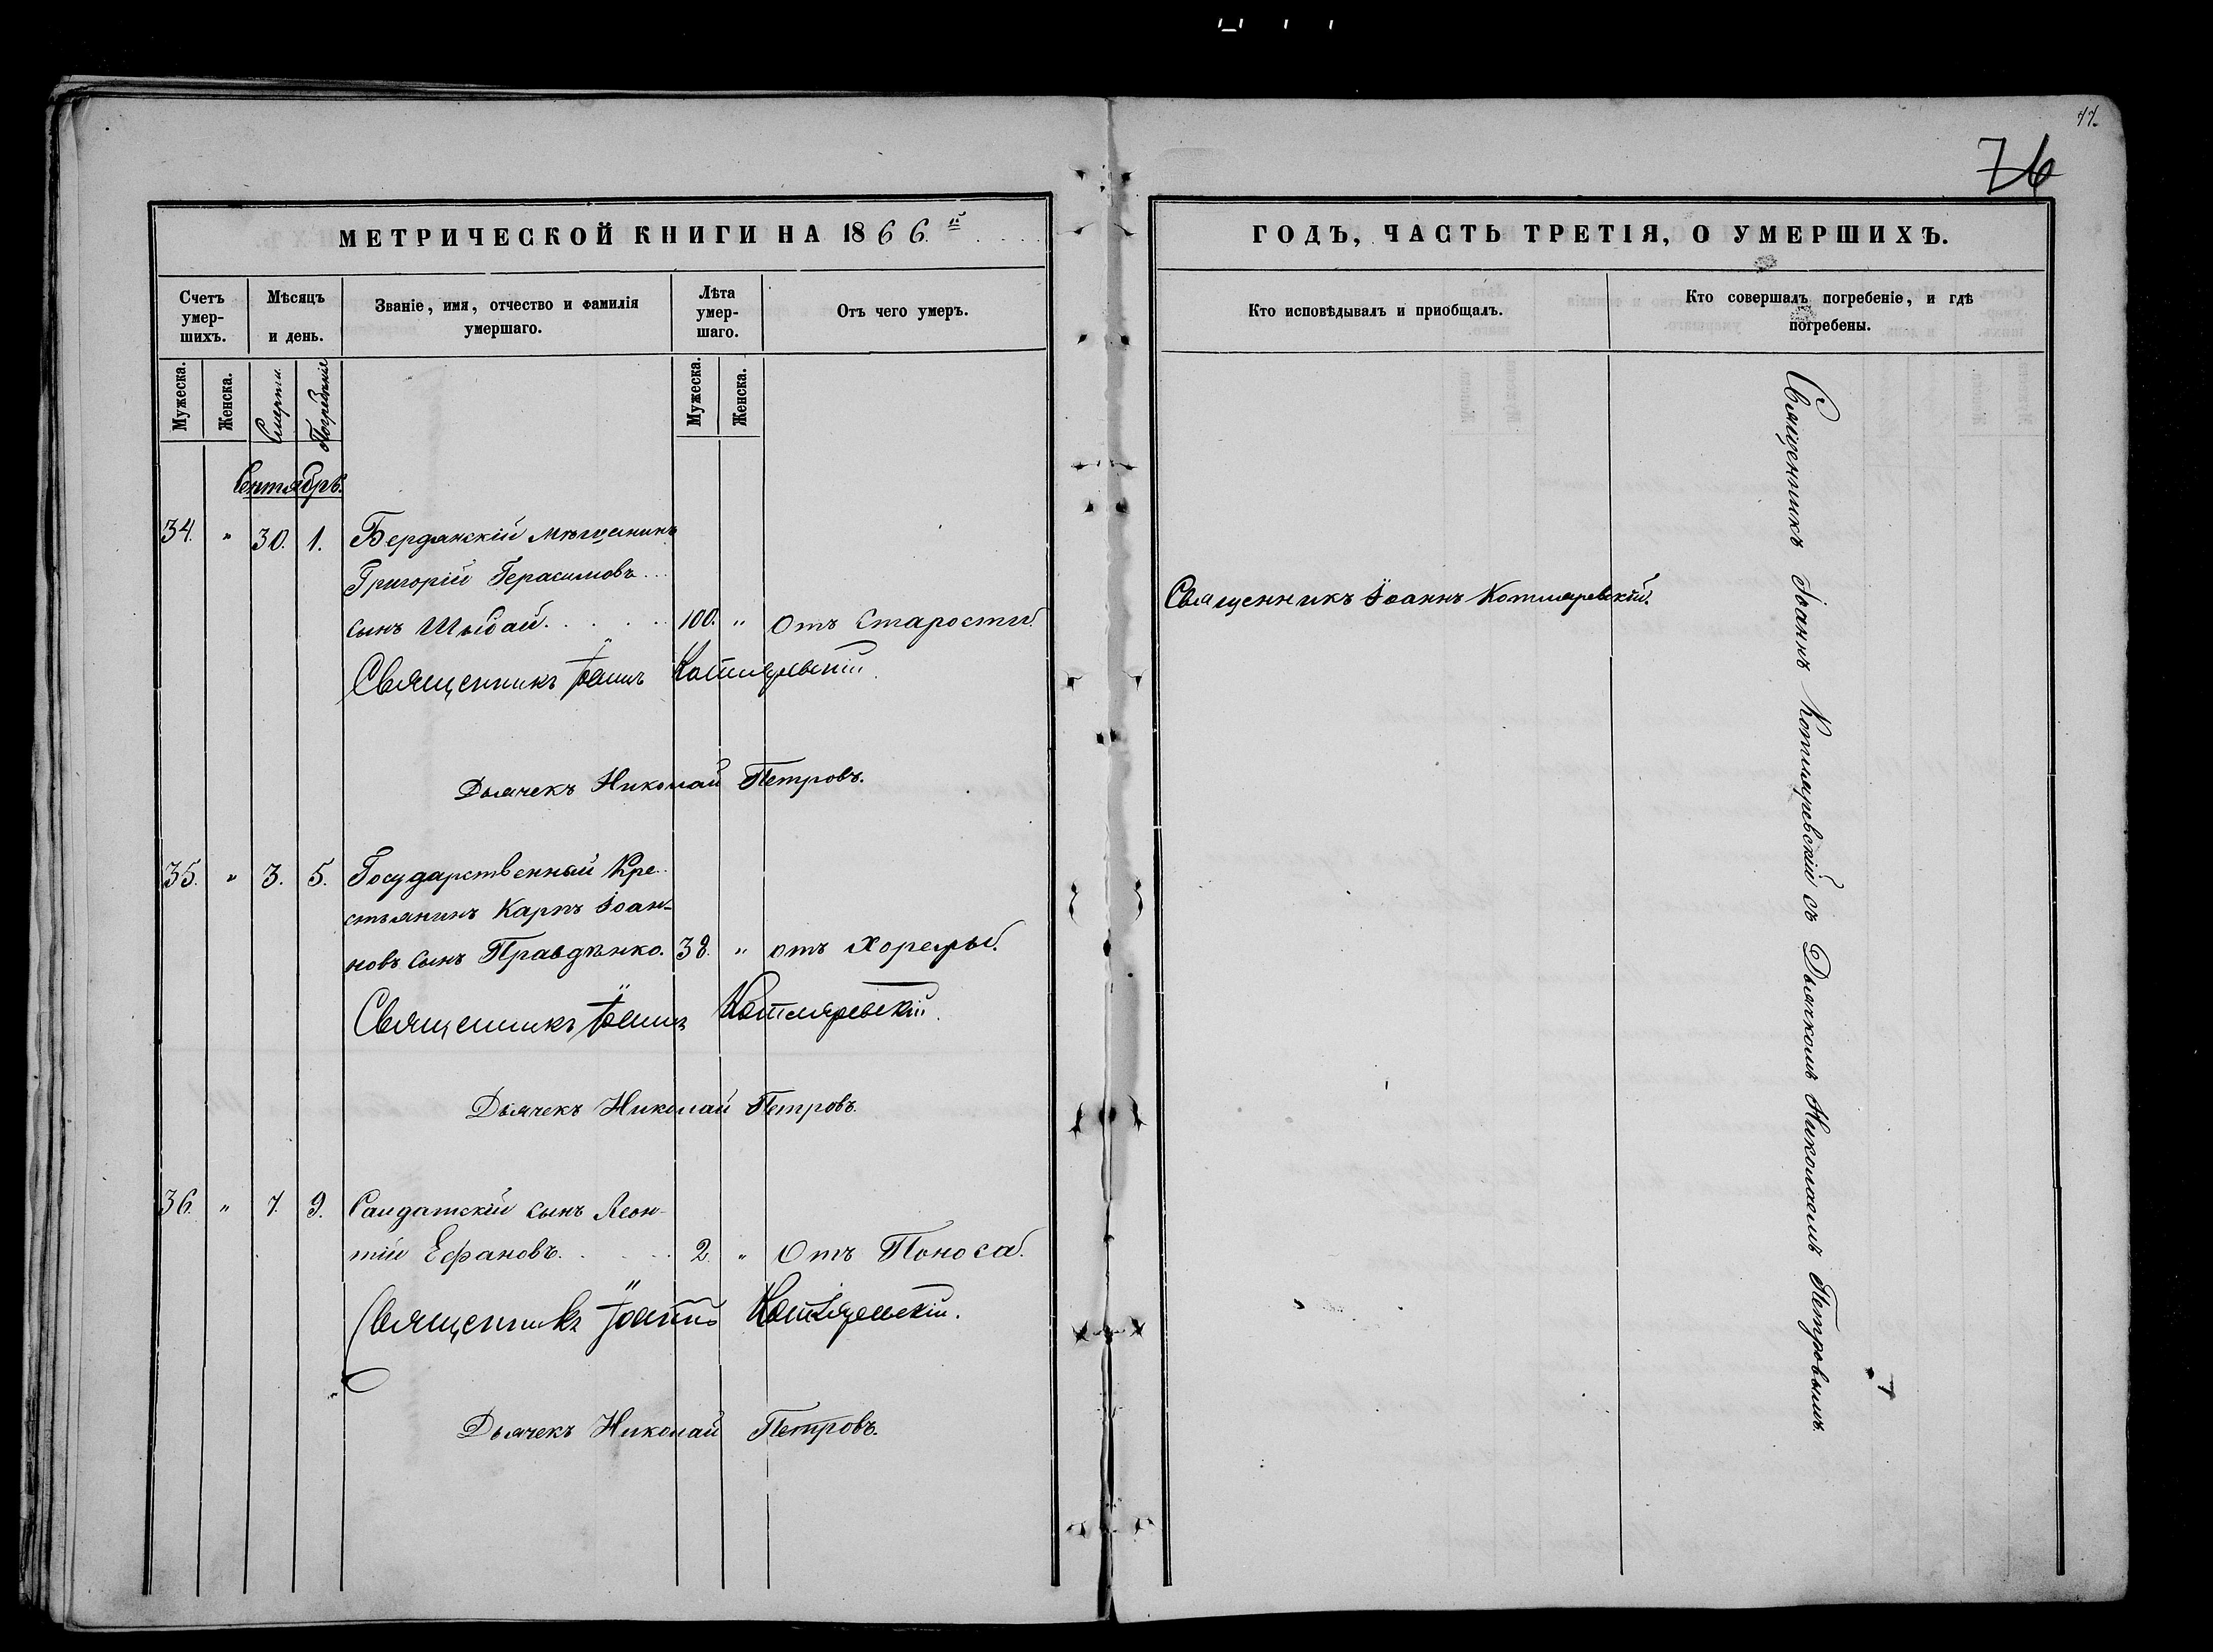 77.
76
МЕТРИЧЕСКОЙ КНИГИ НА 1866.й
Счетъ умер-шихъ.
Мѣсяцъ и день.
Званіе, имя, отчество и фамилія умершаго.
Лѣта умер-шаго.
Отъ чего умеръ.
Мужеска.
Женска.
Смерти.
Погребенія
Мужеска.
Женска.
Сентябрь.
34. " 30. 1. Бердянскій мѣщанинъ
Григорій Герасимовъ...
сынъ Шыбай. . . . . 100. " Отъ Старости.
Священникъ Іоаннъ Котляревскій.
Дьячекъ Николай Петровъ.
35. " 3. 5. Государственный Кре-
стьянинъ Карпъ Іоан-
новъ сынъ Правдѣнко. 38. " отъ Холеры.
Священникъ Іоаннъ Котляревскій.
Дьячекъ Николай Петровъ.
36. " 7. 9. Салдатскій сынъ Леон-
тій Ефановъ. . . . . 2. " Отъ Поноса.
Священникъ Іоаннъ Котляревскій.
Дьячекъ Николай Петровъ.
ГОДЪ, ЧАСТЬ ТРЕТІЯ, О УМЕРШИХЪ.
Кто исповѣдывалъ и приобщалъ.
Кто совершалъ погребеніе, и гдѣ погребены.
Священникъ Іоаннъ Котляревскій.
Священникъ Іоаннъ Котляревскій съ Дьячкомъ Николаемъ Петровымъ.